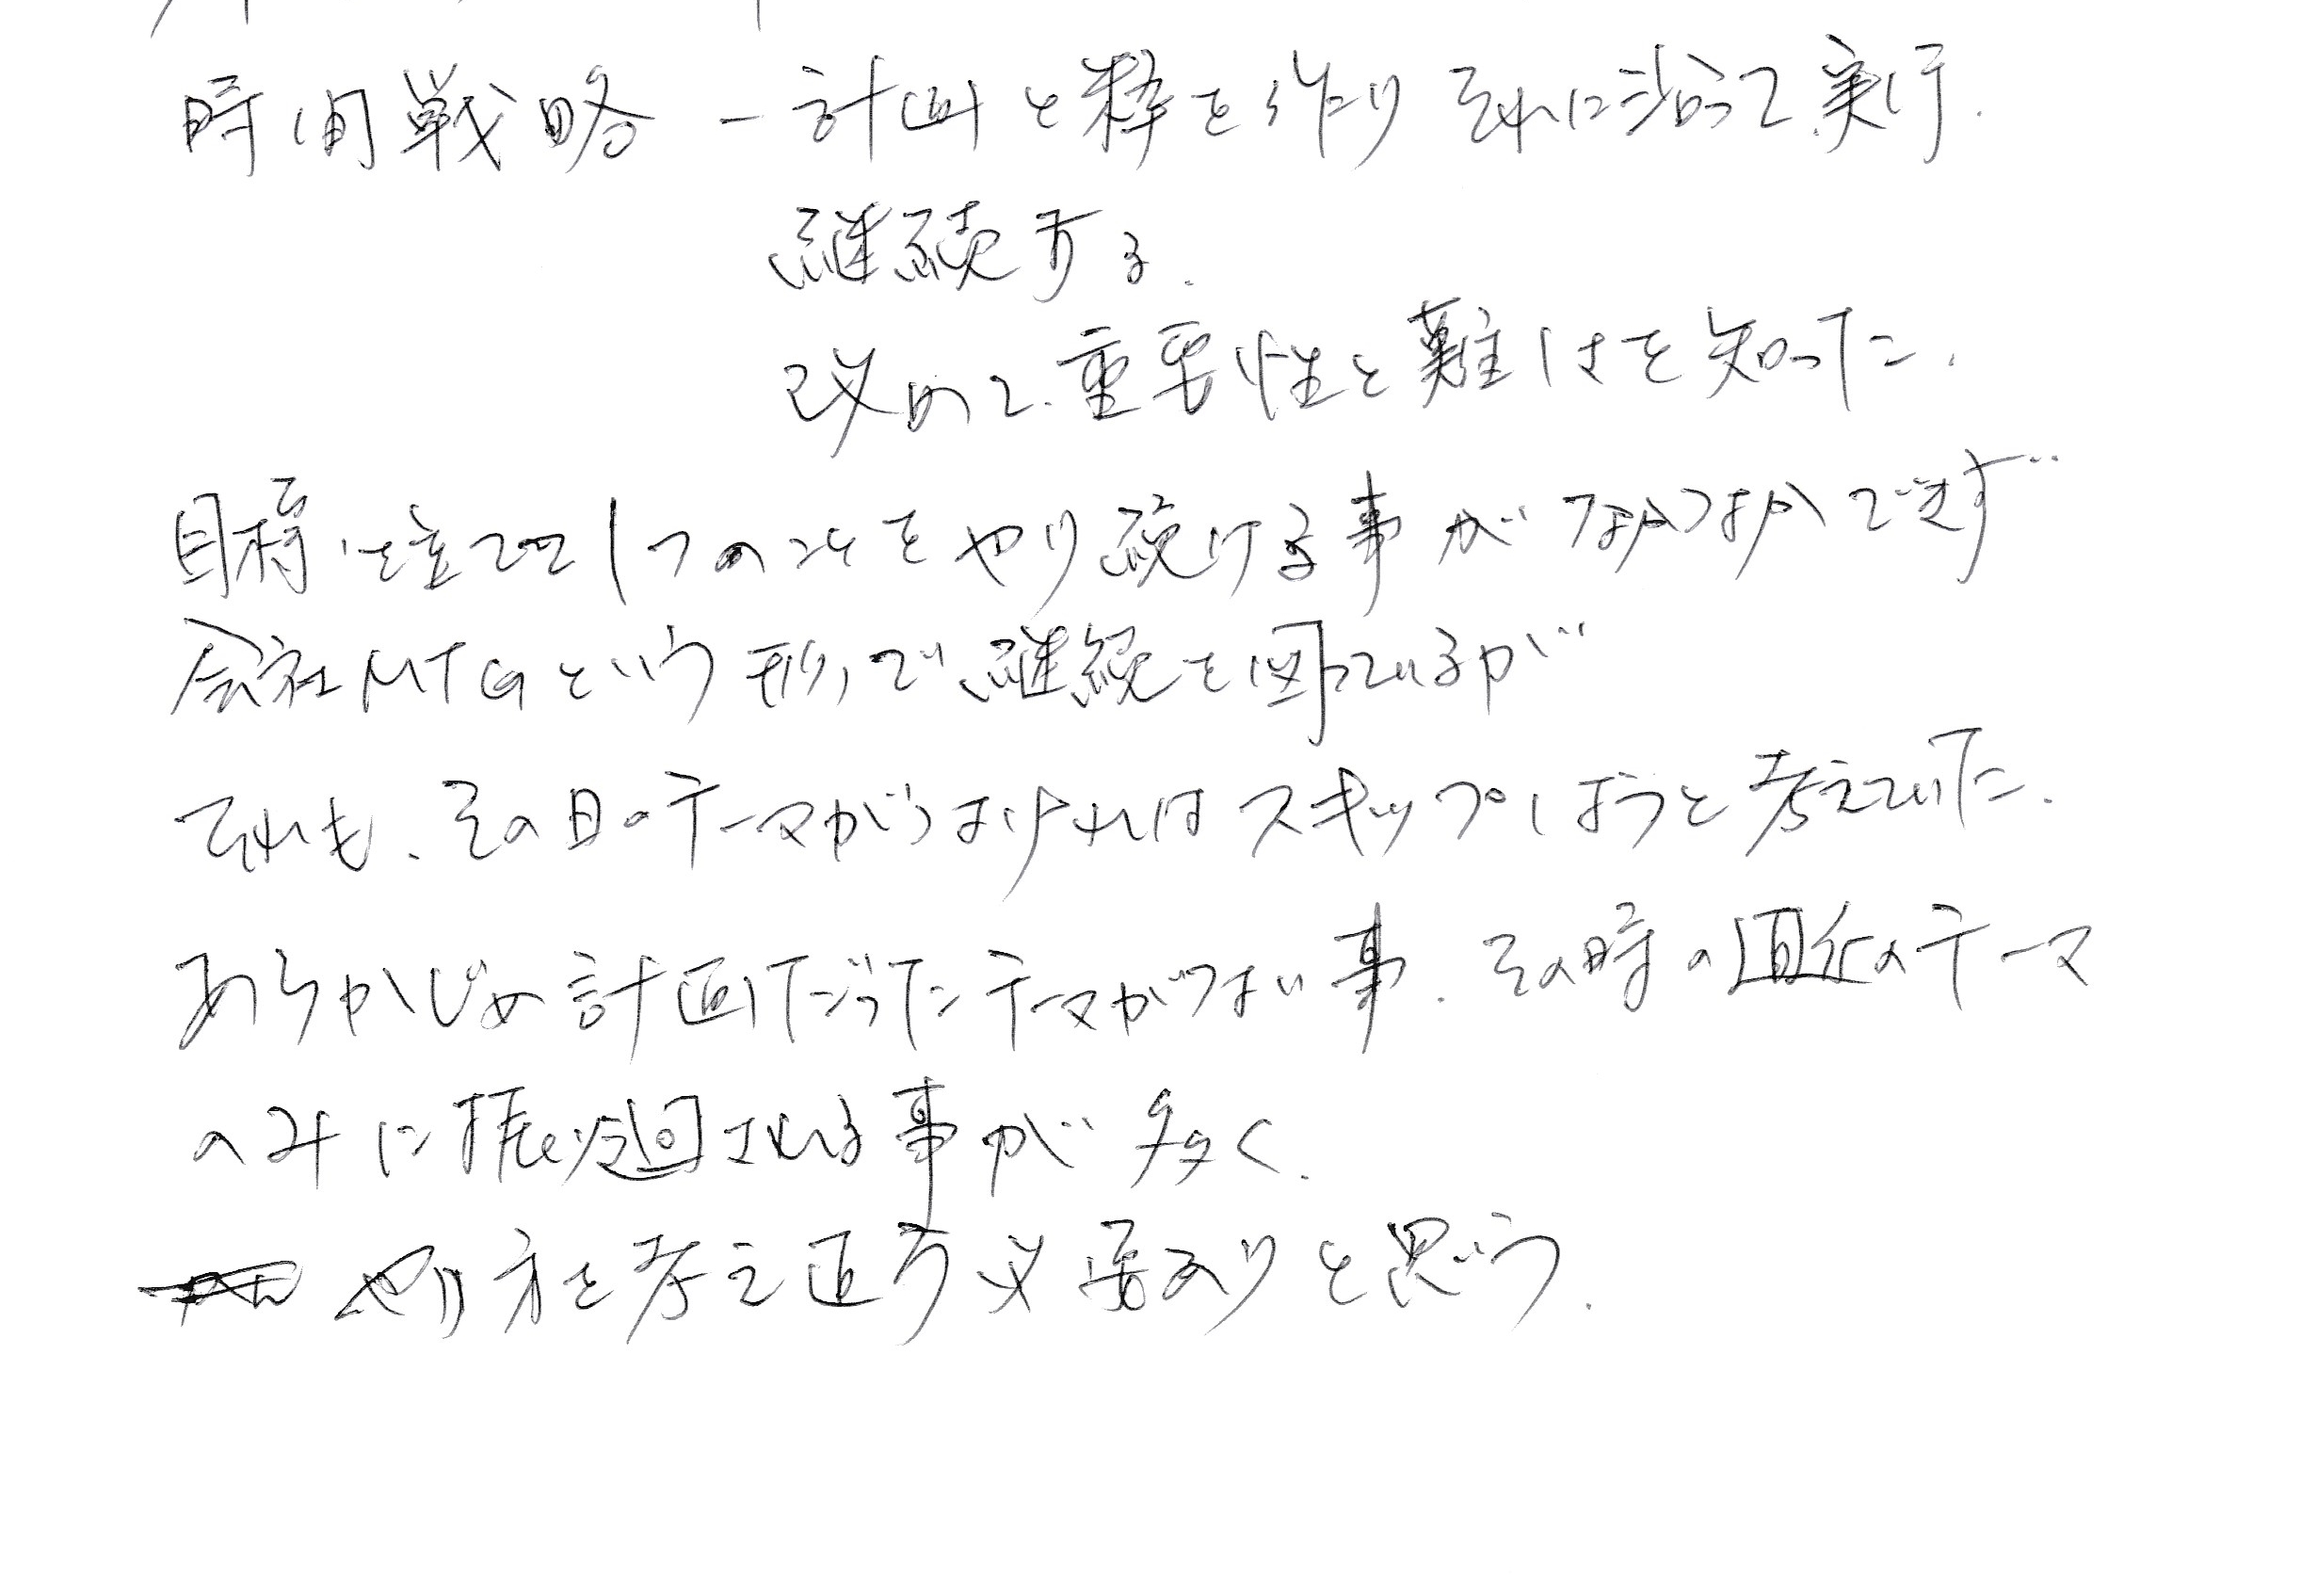 時間戦略 ー 計画と枠を作りそれに沿って、実行.
継続する.
改めて、重要性と難しさを知った.
目標を立てて1つのことをやり続ける事がなかなかできず
会社MTGという形で継続を図っているが
それも、その日のテーマがなければスキップしようと考えていた.
あらかじめ計画だったテーマがない事、その時の直近のテーマ
のみに振り回される事が多く.
やり方を考え直す必要ありと思う.